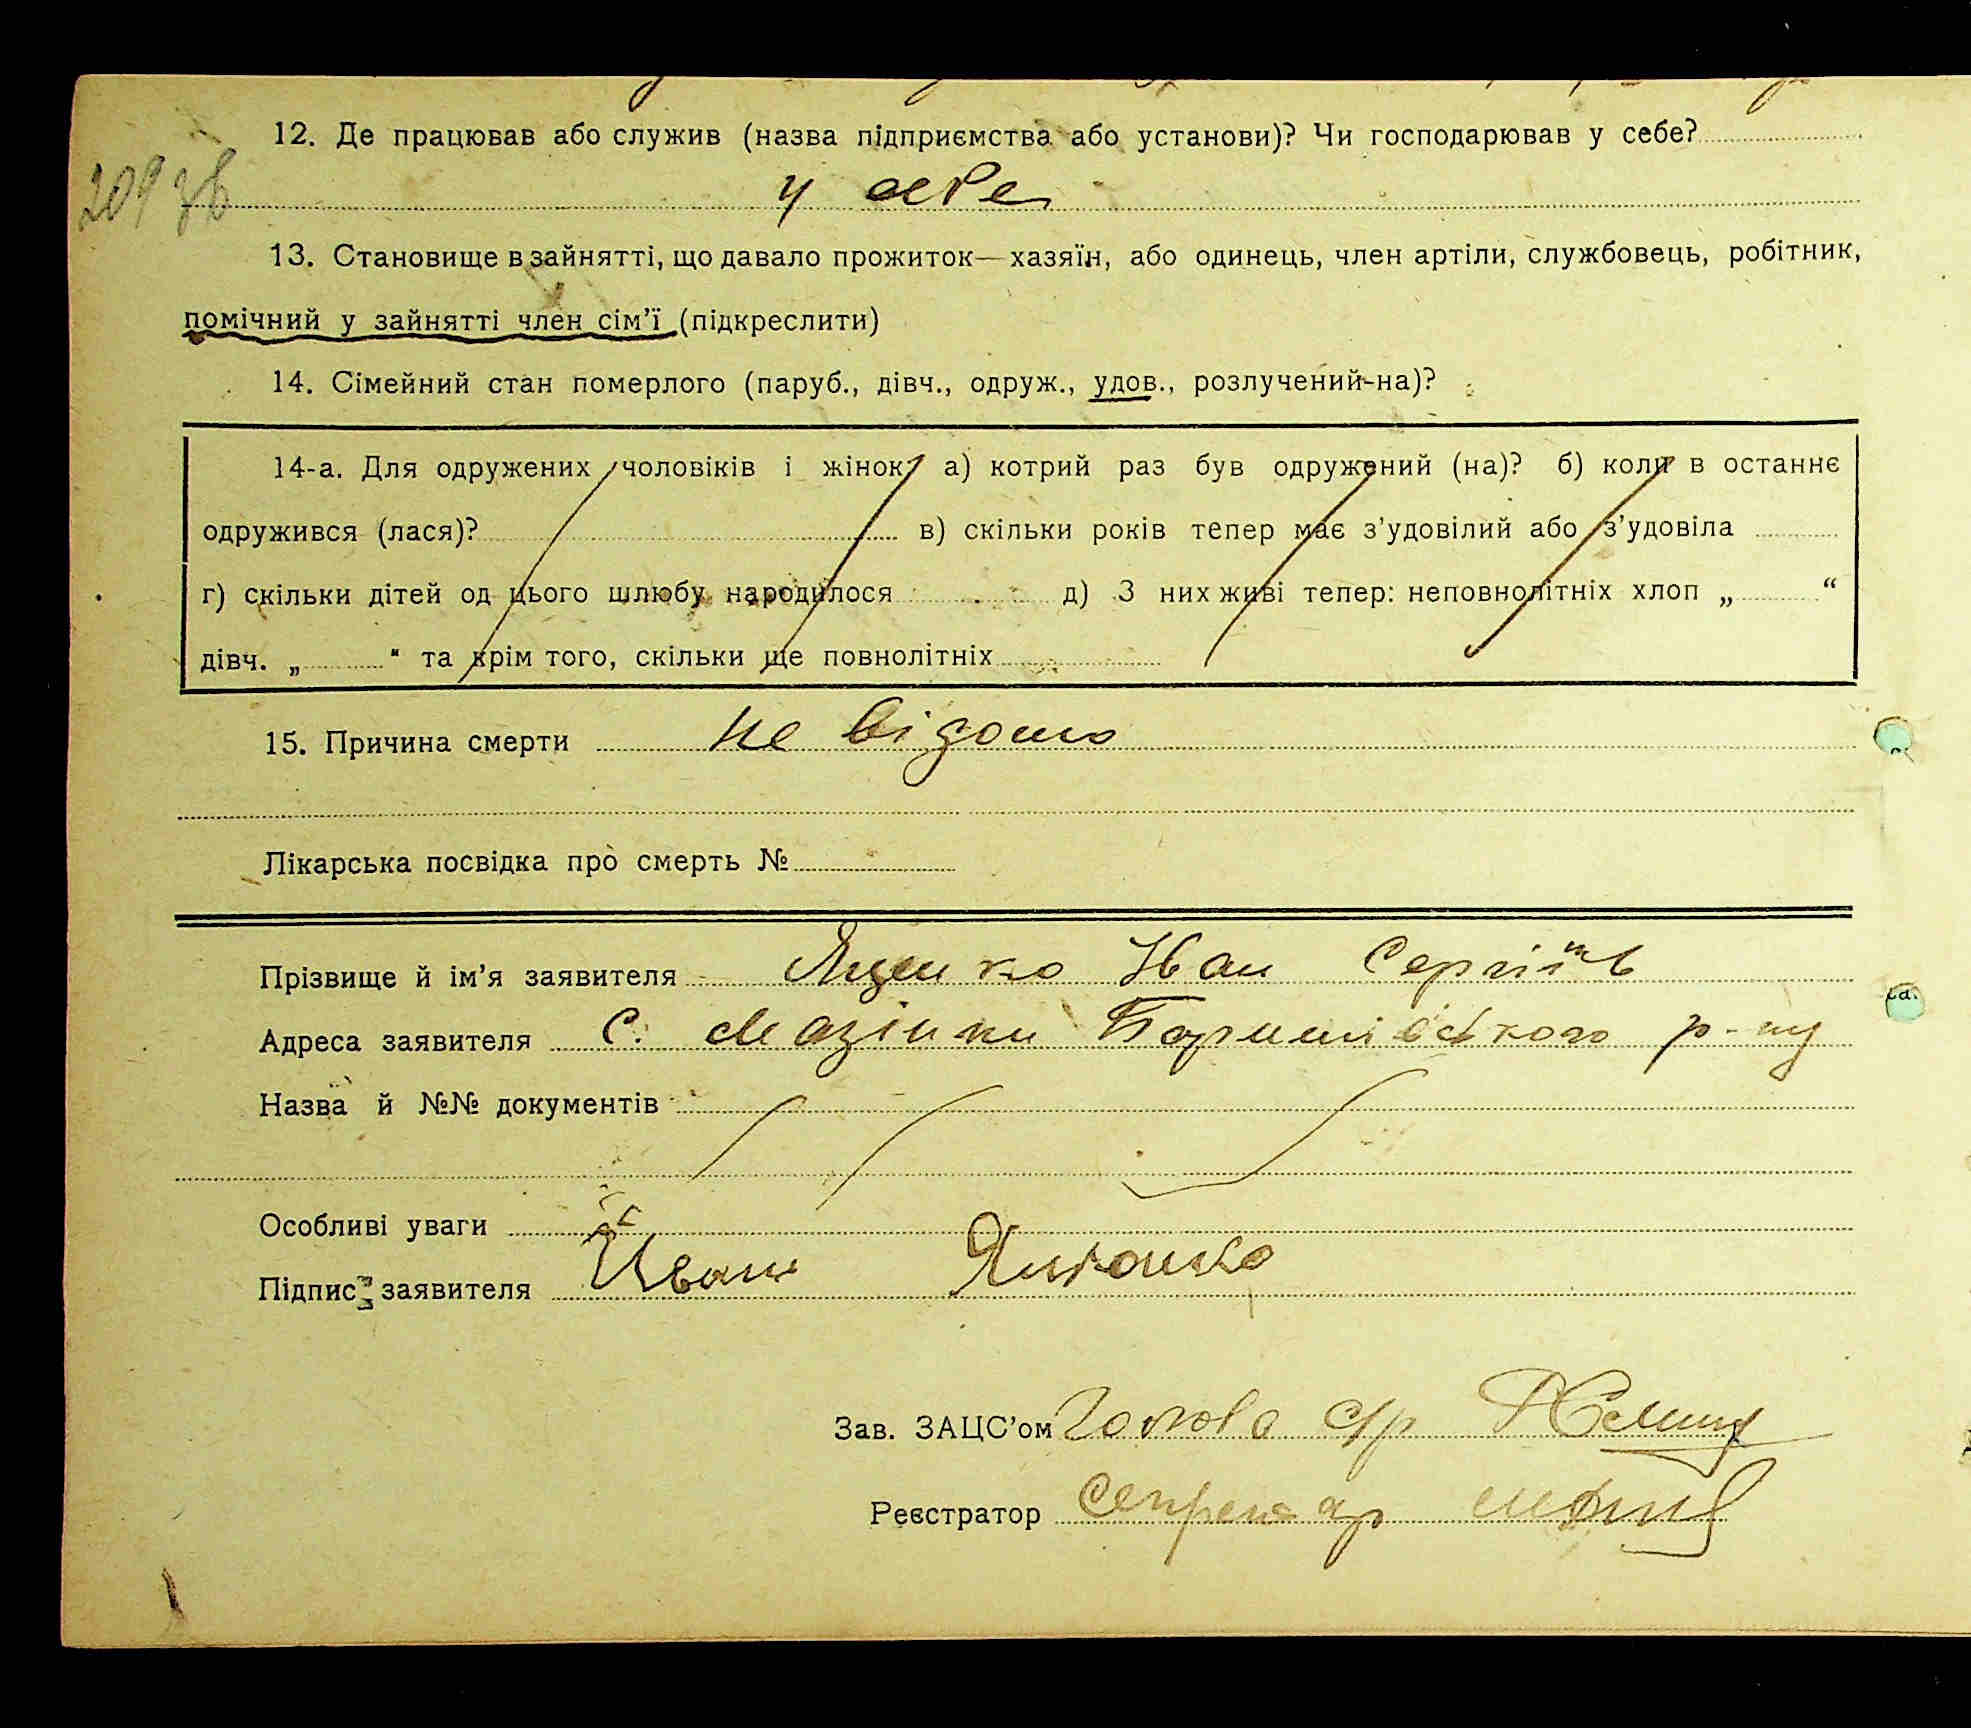 12. Де працював або служив (назва підприємства або установи)? Чи господарював у себе?
209 зв
у себе
13. Становище в зайнятті, що давало прожиток—хазяїн, або одинець, член артіли, службовець, робітник,
помічний у зайнятті член сім’ї (підкреслити)
14. Сімейний стан померлого (паруб., дівч., одруж., удов., розлучений-на)?
14-а. Для одружених чоловіків і жінок: а) котрий раз був одружений (на)? б) коли в останнє
одружився (лася)? в) скільки років тепер має з’удовілий або з’удовіла
г) скільки дітей од цього шлюбу народилося д) З них живі тепер: неповнолітніх хлоп „ “
дівч. „ “ та крім того, скільки ще повнолітніх
15. Причина смерти не відомо
Лікарська посвідка про смерть №
Прізвище й ім’я заявителя Яценко Іван Сергіїв
Адреса заявителя С. Мазінки Баришівського р-ну
Назва й №№ документів
Особливі уваги
Підпис заявителя Иван
Зав. ЗАЦС’ом Голова с/р
Реєстратор Секретар